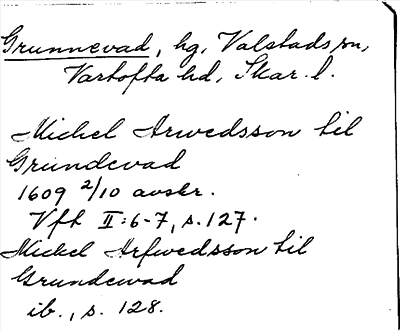 Grunnevad, hg, Valstads sn,
Vartofta hd, Skar. l.
Michel Arwedsson til
Grundevad
1609 2/10 avskr.
Vft II:6-7, s. 127.
Michel Arfwedsson til
Grundewad
ib., s. 128.